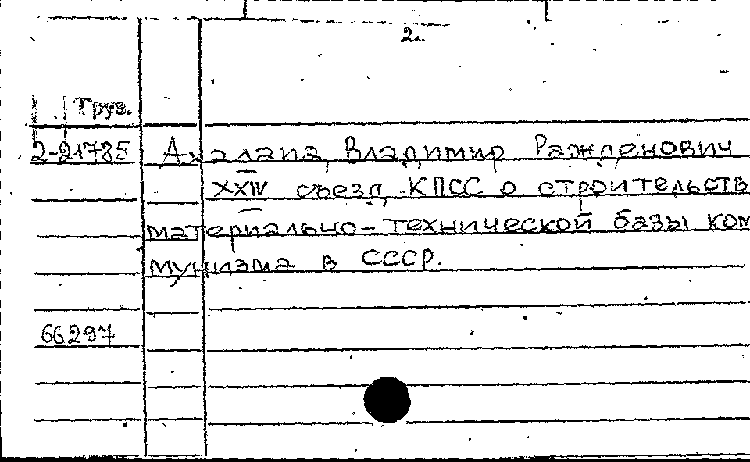 2.
Груз.
2-21785 Ахалаиа, Владимир Ражденович
XXIV съезд КПСС о строительств
материально-технической базы ком
мунизма в СССР.
66297